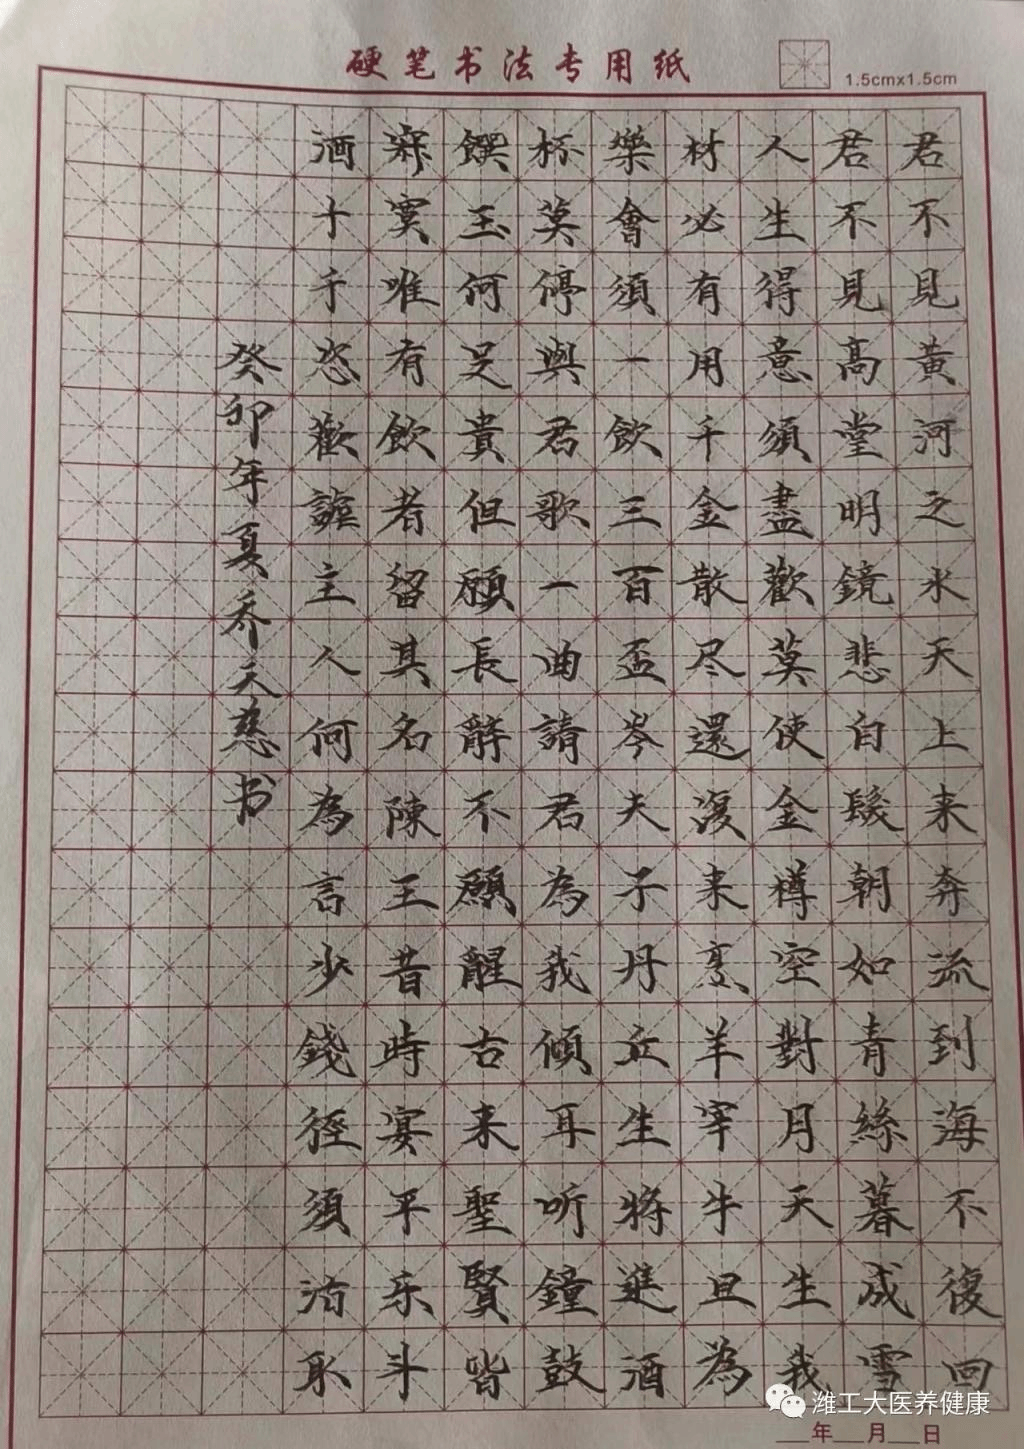 硬笔书法专用纸
1.5cmx1.5cm
君不見黃河之水天上来奔流到海不復回
君不見高堂明鏡悲白髮朝如青絲暮成雪
人生得意須盡歡莫使金樽空對月天生我
材必有用千金散尽還復来烹羊宰牛且為
樂會須一飲三百盃岑夫子丹丘生將進酒
杯莫停與君歌一曲請君為我傾耳听鐘鼓
饌玉何足貴但願長醉不願醒古来聖賢皆
寂寞唯有飲者留其名陳王昔時宴平乐斗
酒十千恣歡謔主人何為言少錢徑須沽取
癸卯年夏乔天慈书
潍工大医养健康
年 月 日